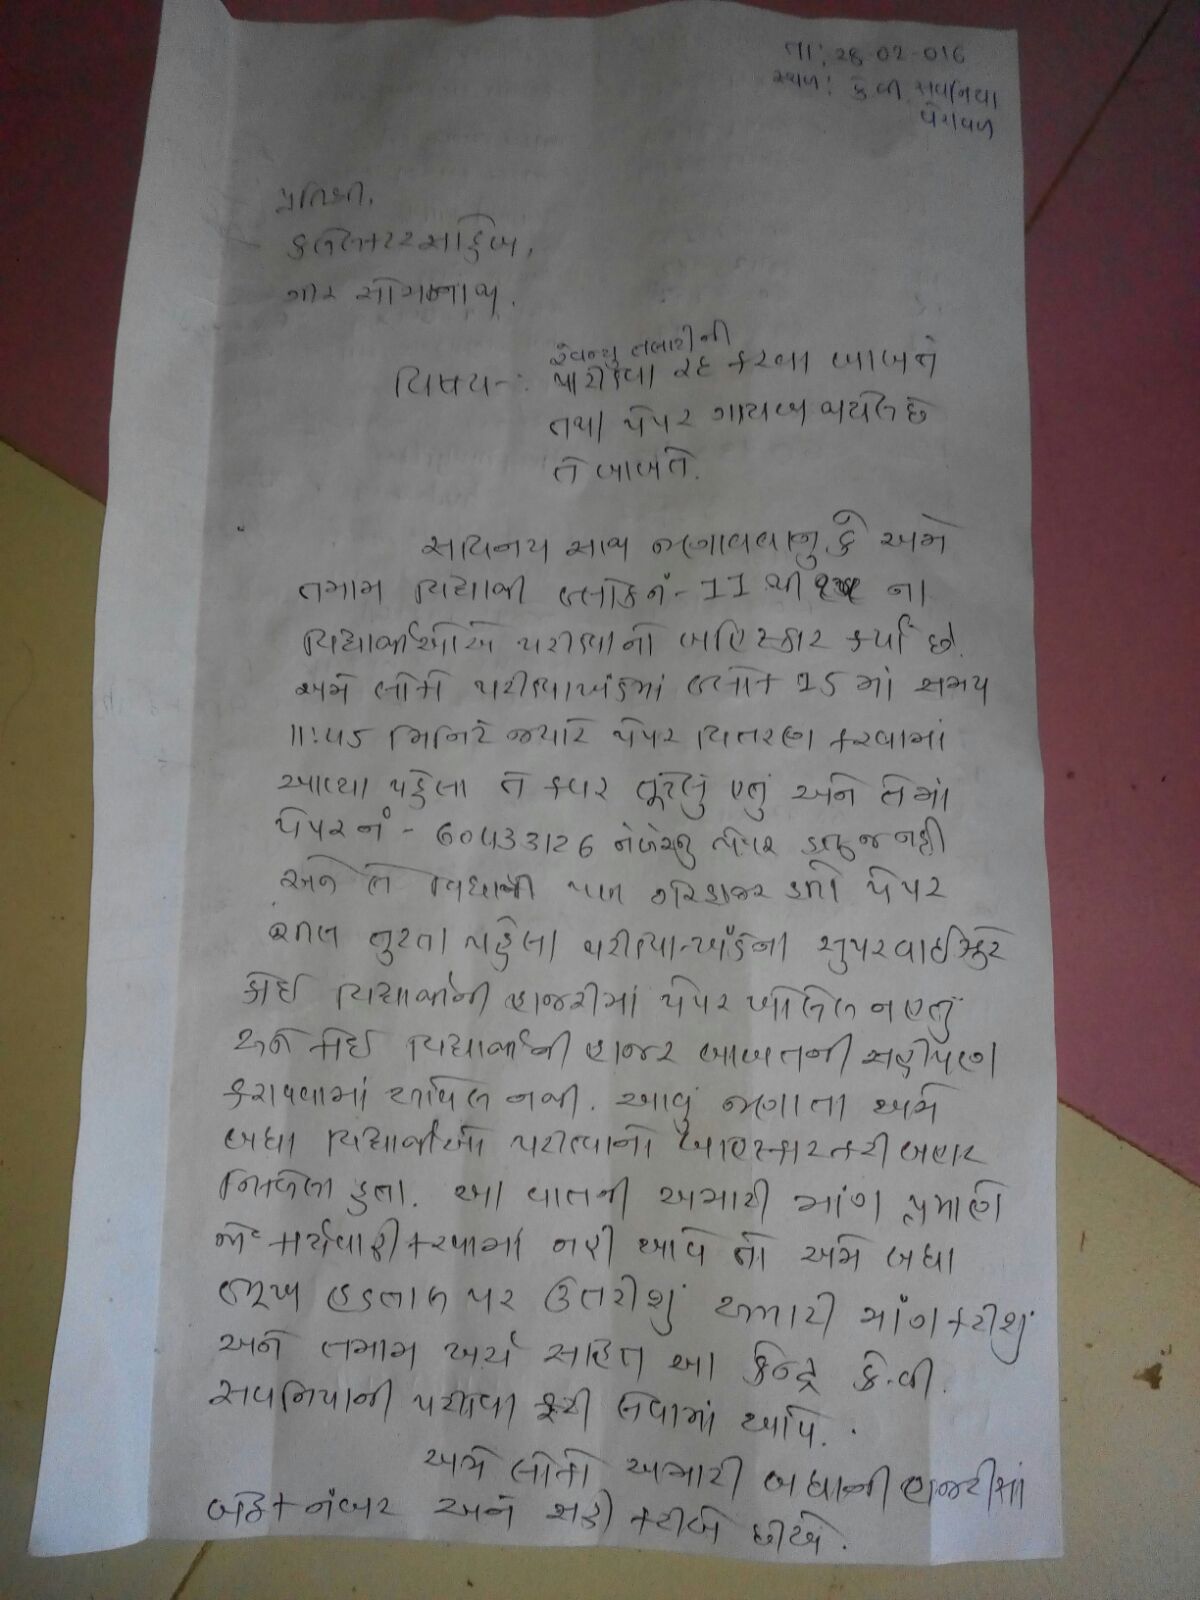 તા: 28-02-016
સ્થળ: કે.વી. સવનિયા
વેરાવળ
પ્રતિશ્રી,
કલેક્ટરસાહેબ,
ગીર સોમનાથ.
રેવન્યુ તલાટીની
વિષય-: પરીક્ષા રદ કરવા બાબતે
તથા પેપર ગાયબ થયેલ છે
તે બાબતે.
સવિનય સાથ જણાવવાનુ કે અમે
તમામ વિદ્યાર્થી બ્લોક નં- 11 થી ના
વિદ્યાર્થીઓએ પરીક્ષાનો બહિસ્કાર કર્યો છે.
અમે લોકો પરીક્ષાખંડમાં બ્લોક 15 માં સમય
11:45 મિનિટે જ્યારે પેપર વિતરણ કરવામાં
આવ્યા પહેલા તે કવર તૂટેલું હતું અને તેમાં
પેપર નં - 60433126 પેપર હતુ જ નહી
અને તે વિદ્યાર્થી પણ ગેરહાજર હતો પેપર
સીલ તુટતા પહેલા પરીક્ષા-ખંડના સુપરવાઈઝરે
કોઈ વિદ્યાર્થીની હાજરીમાં પેપર ખોલેલ ન હતું
અને કોઈ વિદ્યાર્થીની હાજર બાબતની સહીપણ
કરાવવામાં આવેલ નથી. આવું જણાતા અમે
બધા વિદ્યાર્થીઓ પરીક્ષાનો બહિસ્કાર કરી બહાર
નિકળેલા હતા. આ વાતની અમારી માંગ પ્રમાણે
જો કાર્યવાહી કરવામાં નહી આવે તો અમે બધા
ભૂખ હડતાળ પર ઉતરીશું અમારી માંગ કરીશું
અને તમામ ખર્ચ સહિત આ કેન્દ્ર કે.વી.
સવનિયાની પરીક્ષા ફરી લેવામાં આવે.
અમે લોકો અમારી બધાની હાજરીમાં
બેઠક નંબર અને સહી કરીએ છીએ.